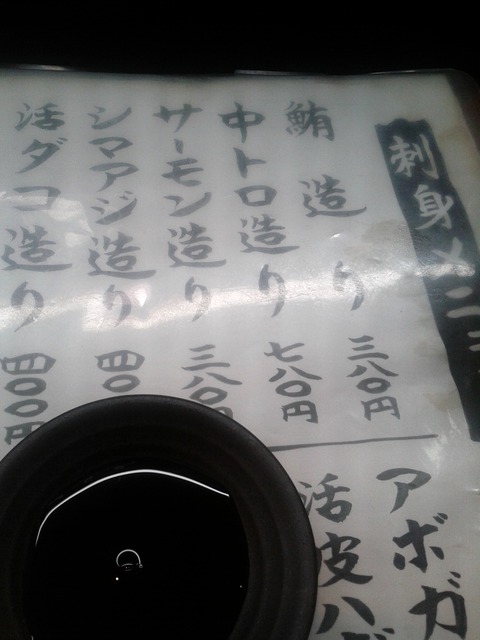 刺身メニュ
鮪造り 三八〇円
中トロ造り 七八〇円
サーモン造り 三八〇円
シマアジ造り 四〇
活ダコ造り 四〇〇円
アボガ
活皮ハ